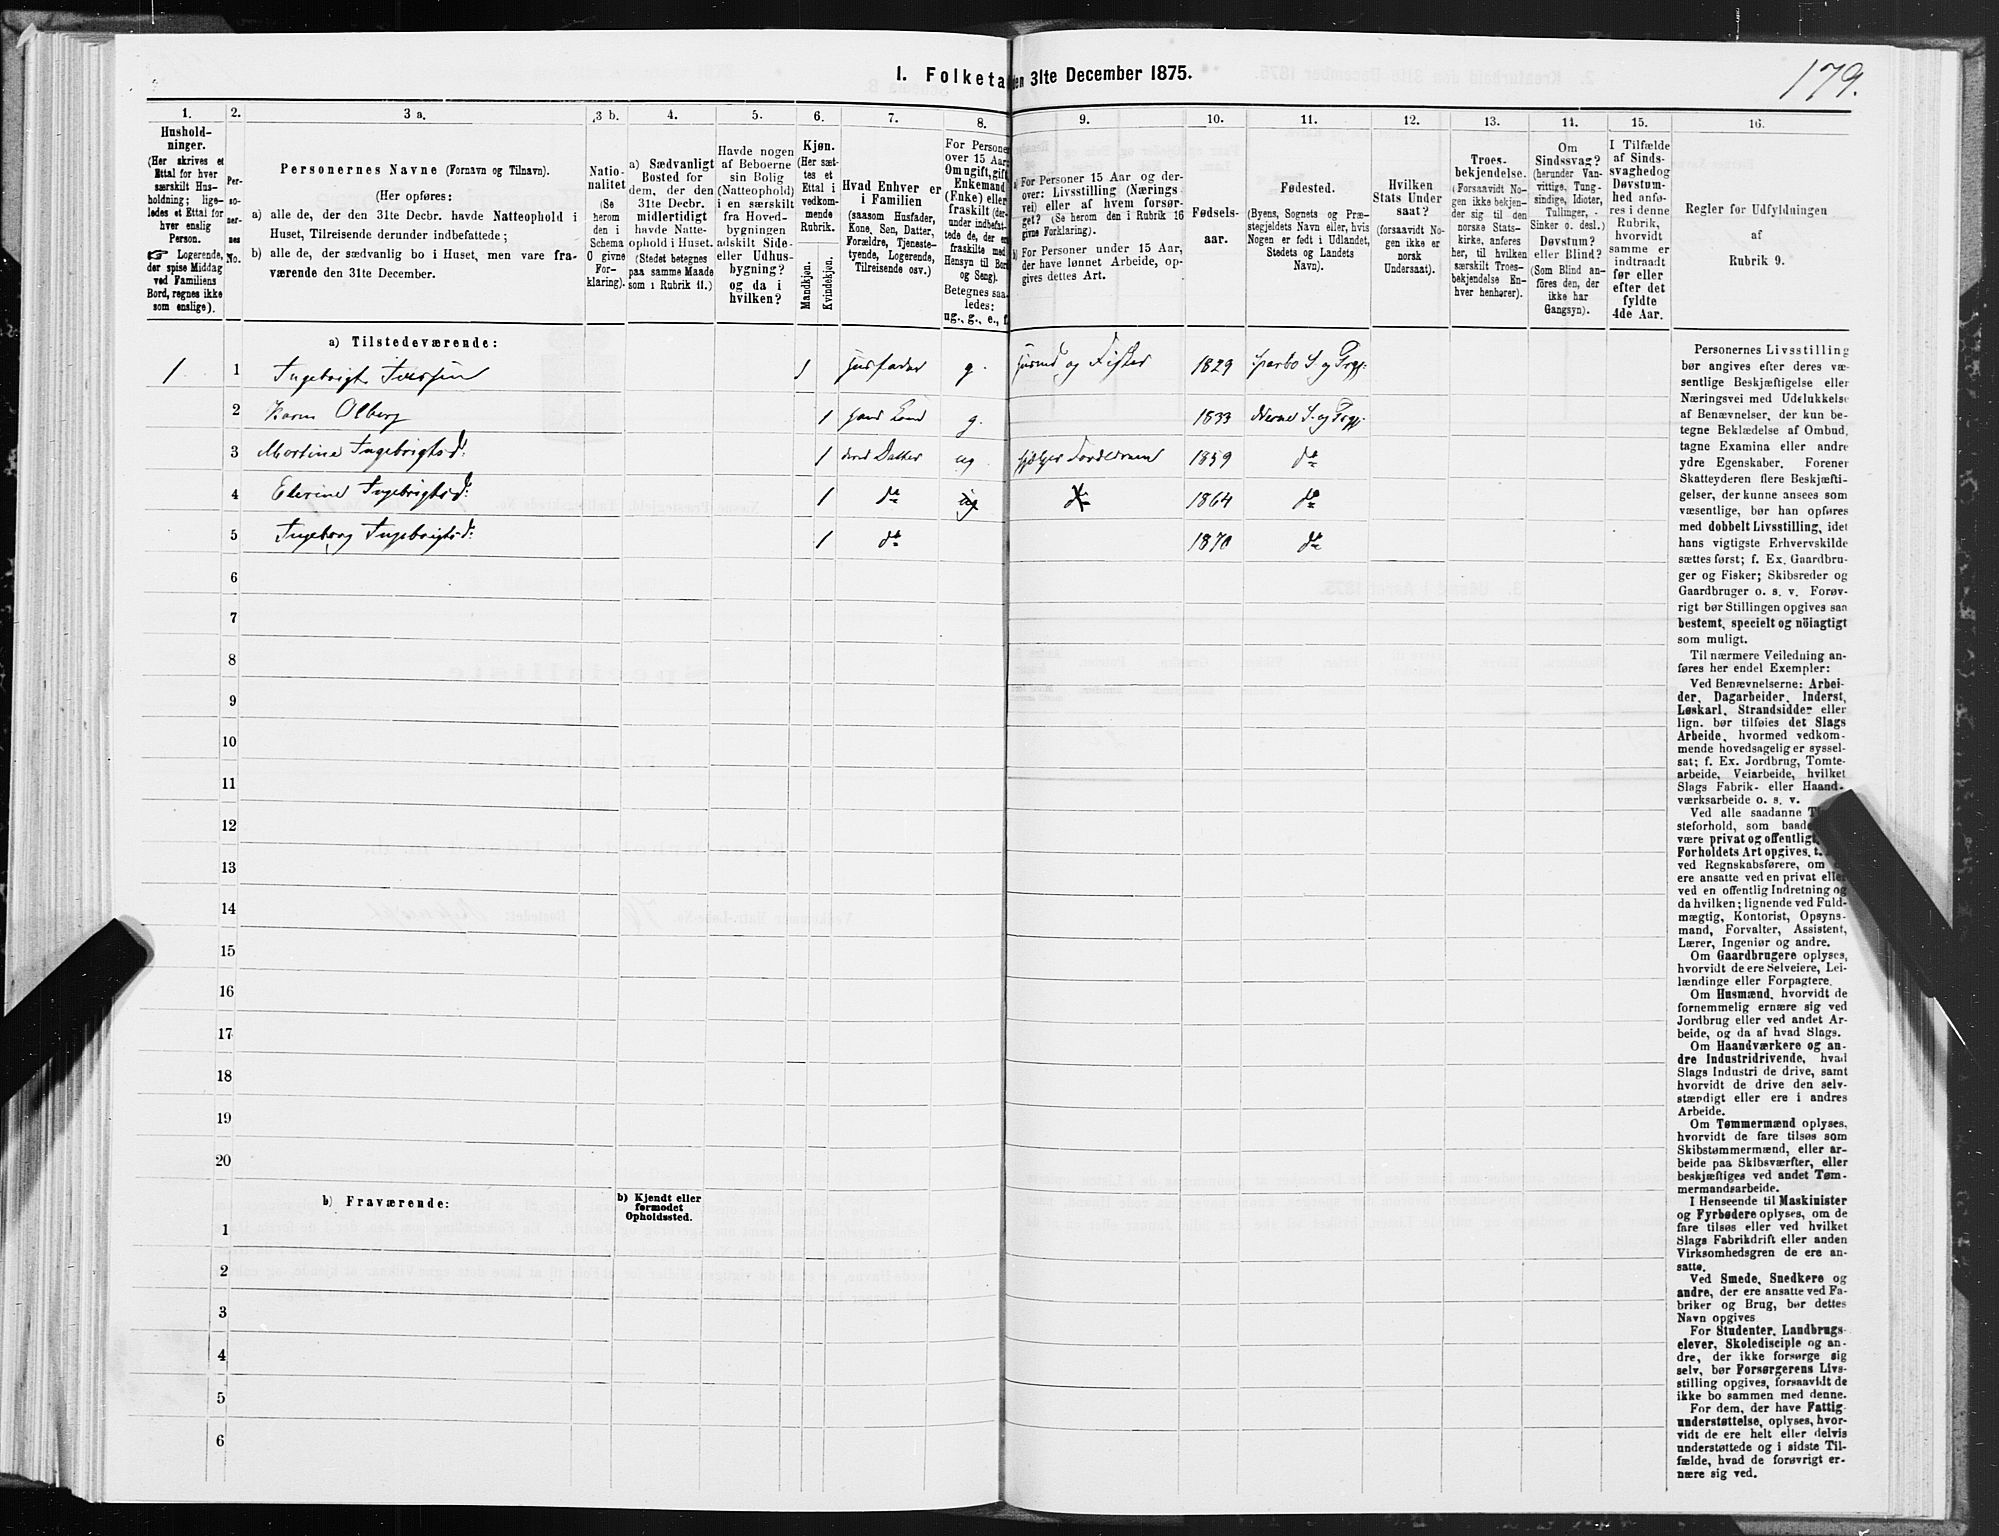 179.
I. Folketa den 31te December 1875.
1. 2. 3 a. 3 b. 4. 5. 6. 7. 8. 9. 10. 11. 12. 13. 14. 15. 16.
Hushold-
ninger.
(Her skrives et
Ettal for hver
særskilt Hus-
holdning; lige-
ledes et Ettal for
hver enslig
Person.
☞ Logerende,
der spise Middag
ved Familiens
Bord, regnes ikke
som enslige).
Per-
so-
ner-
nes
No.
Personernes Navne (Fornavn og Tilnavn).
(Her opføres:
a) alle de, der den 31te Decbr. havde Natteophold i
Huset, Tilreisende derunder indbefattede;
b) alle de, der sædvanlig bo i Huset, men vare fra-
værende den 31te December.
Natio-
nalitet
(Se
herom
den i
Schema
O givne
For-
klaring).
a) Sædvanligt
Bosted for
dem, der den
31te Decbr.
midlertidigt
havde Natte-
ophold i Huset.
(Stedet betegnes
paa samme Maade
som i Rubrik 11.)
Havde nogen
af Beboerne
sin Bolig
(Natteophold)
i en særskilt
fra Hoved-
bygningen
adskilt Side-
eller Udhus-
bygning?
og da i
hvilken?
Kjøn.
(Her sæt-
tes et
Ettal i
vedkom-
mende
Rubrik.
Mandkjøn.
Kvindekjøn.
Hvad Enhver er
i Familien
(saasom Husfader,
Kone, Søn, Datter,
Forældre, Tjeneste-
tyende, Logerende,
Tilreisende osv.)
For Personer
over 15 Aar:
Om ugift, gift,
Enkemand
(Enke) eller
fraskilt (der-
under indbefat-
tede de, der er
fraskilte med
Hensyn til Bord
og Seng).
Betegnes saa-
ledes:
ug., g., e., f.
a) For Personer 15 Aar og der-
over: Livsstilling (Nærings
vei) eller af hvem forsør-
get? (Se herom den i Rubrik 16
givne Forklaring).
b) For Personer under 15 Aar,
der have lønnet Arbeide, op-
gives dettes Art.
Fødsels-
aar.
Fødested.
(Byens, Sognets og Præ-
stegjeldets Navn eller, hvis
Nogen er født i Udlandet,
Stedets og Landets
Navn).
Hvilken
Stats Under
saat?
(forsaavidt No-
gen ikke er
norsk
Undersaat).
Troes-
bekjendelse.
(Forsaavidt No-
gen ikke bekjen-
der sig til den
norske Stats-
kirke, anføres
her, til hvilken
særskilt Troes-
bekjendelse En-
hver henhører).
Om
Sindssvag?
(herunder Van-
vittige, Tung-
sindige, Idioter,
Tullinger,
Sinker o. desl.)
Døvstum?
eller Blind?
(Som Blind an-
føres den, der
ikke har
Gangsyn).
I Tilfælde
af Sinds-
svaghed og
Døvstum-
hed anfø-
res i denne
Rubrik,
hvorvidt
samme er
indtraadt
før eller
efter det
fyldte
4de Aar.
Regler for Udfyldningen
af
Rubrik 9.
a) Tilstedeværende:
1 1 Ingebrigt 1 Husfader g. og Fisker 1829 Sparbo S. og Prgj:
2 Karen Olberg 1 hans Kone g. 1833 S. og Prgj.
3 Martine Ingebrigtsd: 1 deres Datter ug hjælper Forældrene 1859 do
4 Elerine Ingebrigtsd: 1 do ug do 1864 do
5 Ingeborg Ingebrigtsd: 1 do 1870 do
6
7
8
9
10
11
12
13
14
15
16
17
18
19
20
b) Fraværende: b) Kjendt eller
formodet
Opholdssted.
1
2
3
4
5
6
Personernes Livsstilling
bør angives efter deres væ-
sentlige Beskjæftigelse eller
Næringsvei med Udelukkelse
af Benævnelser, der kun be-
tegne Beklædelse af Ombud,
tagne Examina eller andre
ydre Egenskaber. Forener
Skatteyderen flere Beskjæfti-
gelser, der kunne ansees som
væsentlige, bør han opføres
med dobbelt Livsstilling, idet
hans vigtigste Erhvervskilde
sættes først; f. Ex. Gaardbru-
ger og Fisker; Skibsreder og
Gaardbruger o. s. v. Forøv-
rigt bør Stillingen opgives saa
bestemt, specielt og nöiagtigt
som muligt.
Til nærmere Veiledning an-
føres her endel Exempler:
Ved Benævnelserne: Arbei-
der, Dagarbeider, Inderst,
Løskarl, Strandsidder eller
lign. bør tilføies det Slags
Arbeide, hvormed vedkom-
mende hovedsagelig er syssel-
sat; f. Ex. Jordbrug, Tomte-
arbeide, Veiarbeide, hvilket
Slags Fabrik- eller Haand-
værksarbeide o. s. v.
Ved alle saadanne
steforhold, som baade
være privat og offentligt,
Forholdets Art opgives, t.
ved Regnskabsførere, om
ere ansatte ved en privat eller
ved en offentlig Indretning og
da hvilken; lignende ved Fuld-
mægtig, Kontorist, Opsyns-
mand, Forvalter, Assistent,
Lærer, Ingeniør og andre.
Om Gaardbrugere oplyses,
hvorvidt de ere Selveiere, Lei-
lændinge eller Forpagtere.
Om Husmænd, hvorvidt de
fornemmelig ernære sig ved
Jordbrug eller ved andet Ar-
beide, og da af hvad Slags.
Om Haandværkere og an-
dre Industridrivende, hvad
Slags Industri de drive, samt
hvorvidt de drive den selv-
stændigt eller ere i andres
Arbeide.
Om Tømmermænd oplyses,
hvorvidt de fare tilsøs som
Skibstømmermænd, eller ar-
beide paa Skibsværfter, eller
beskjæftiges ved andet Tøm-
mermandsarbeide.
I Henseende til Maskinister
og Fyrbødere oplyses, om de
fare tilsøs eller ved hvilket
Slags Fabrikdrift eller anden
Virksomhedsgren de ere an-
satte.
Ved Smede, Snedkere og
andre, der ere ansatte ved Fa-
briker og Brug, bør dettes
Navn opgives
For Studenter, Landbrugs-
elever, Skoledisciple og an-
dre, der ikke forsørge sig
selv, bør Forsørgerens Livs-
stilling opgives, forsaavidt de
ikke bo sammen med denne.
For dem, der have Fattig-
understøttelse, oplyses, hvor-
vidt de ere helt eller delvis
understøttede og i sidste Til-
fælde, hvad de forøvrigt er-
nære sig ved.